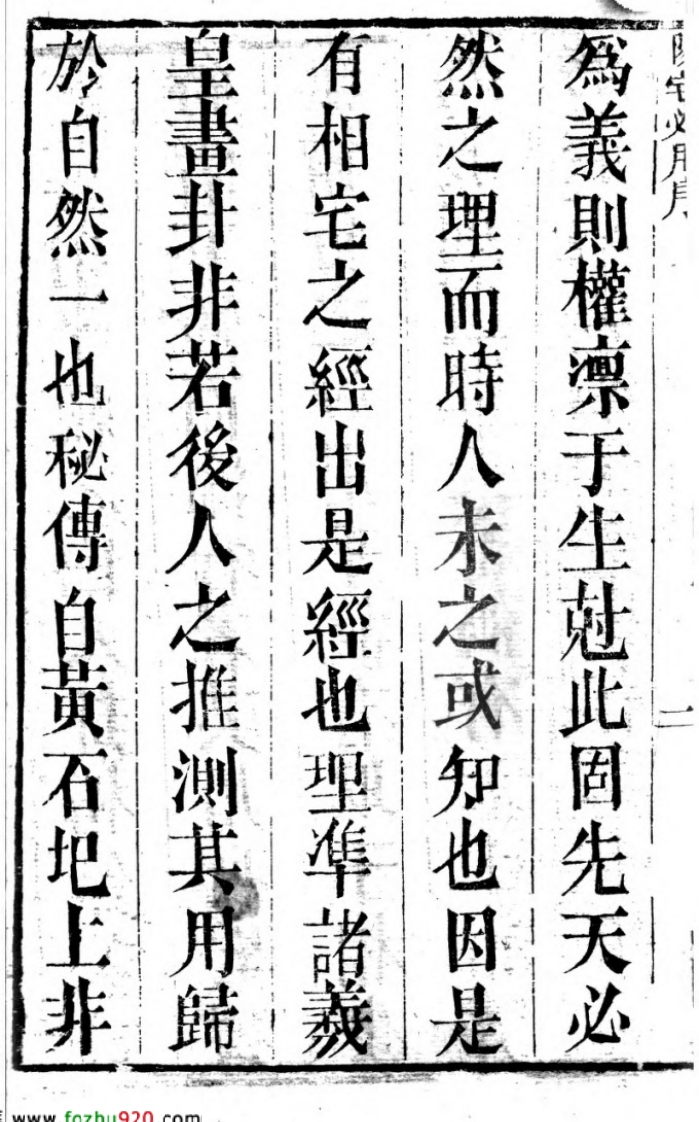 爲義則權凛于生尅此固先天必
然之理而時人未之或知也因是
有相宅之經出是經也理準諸羲
皇畫卦非若後人之推測其用歸
於自然一也秘傳自黃石圯上非
二
www.fozhu920.com